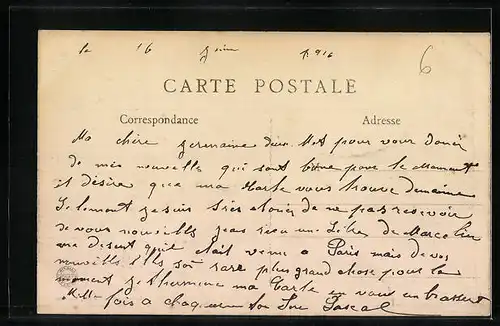 le 16 juin 1916
6
CARTE POSTALE
Correspondance
Adresse
Ma chère germaine deux Mot pour vour donér
de mes nouvells qui sont bone pour le Momant
et désire que ma Carte vous trouve de maime
Seulement je suis très étoner de ne pas resevoir
de vous nouvells jeais resu une Lètre de Marcelin
me desent quil était venu a Paris mais de vos
nouvells Ells son rare plus grand chose pour le
moment je thermine ma Carte en vous enbrassent
Mille fois a chaqueune son Pascal